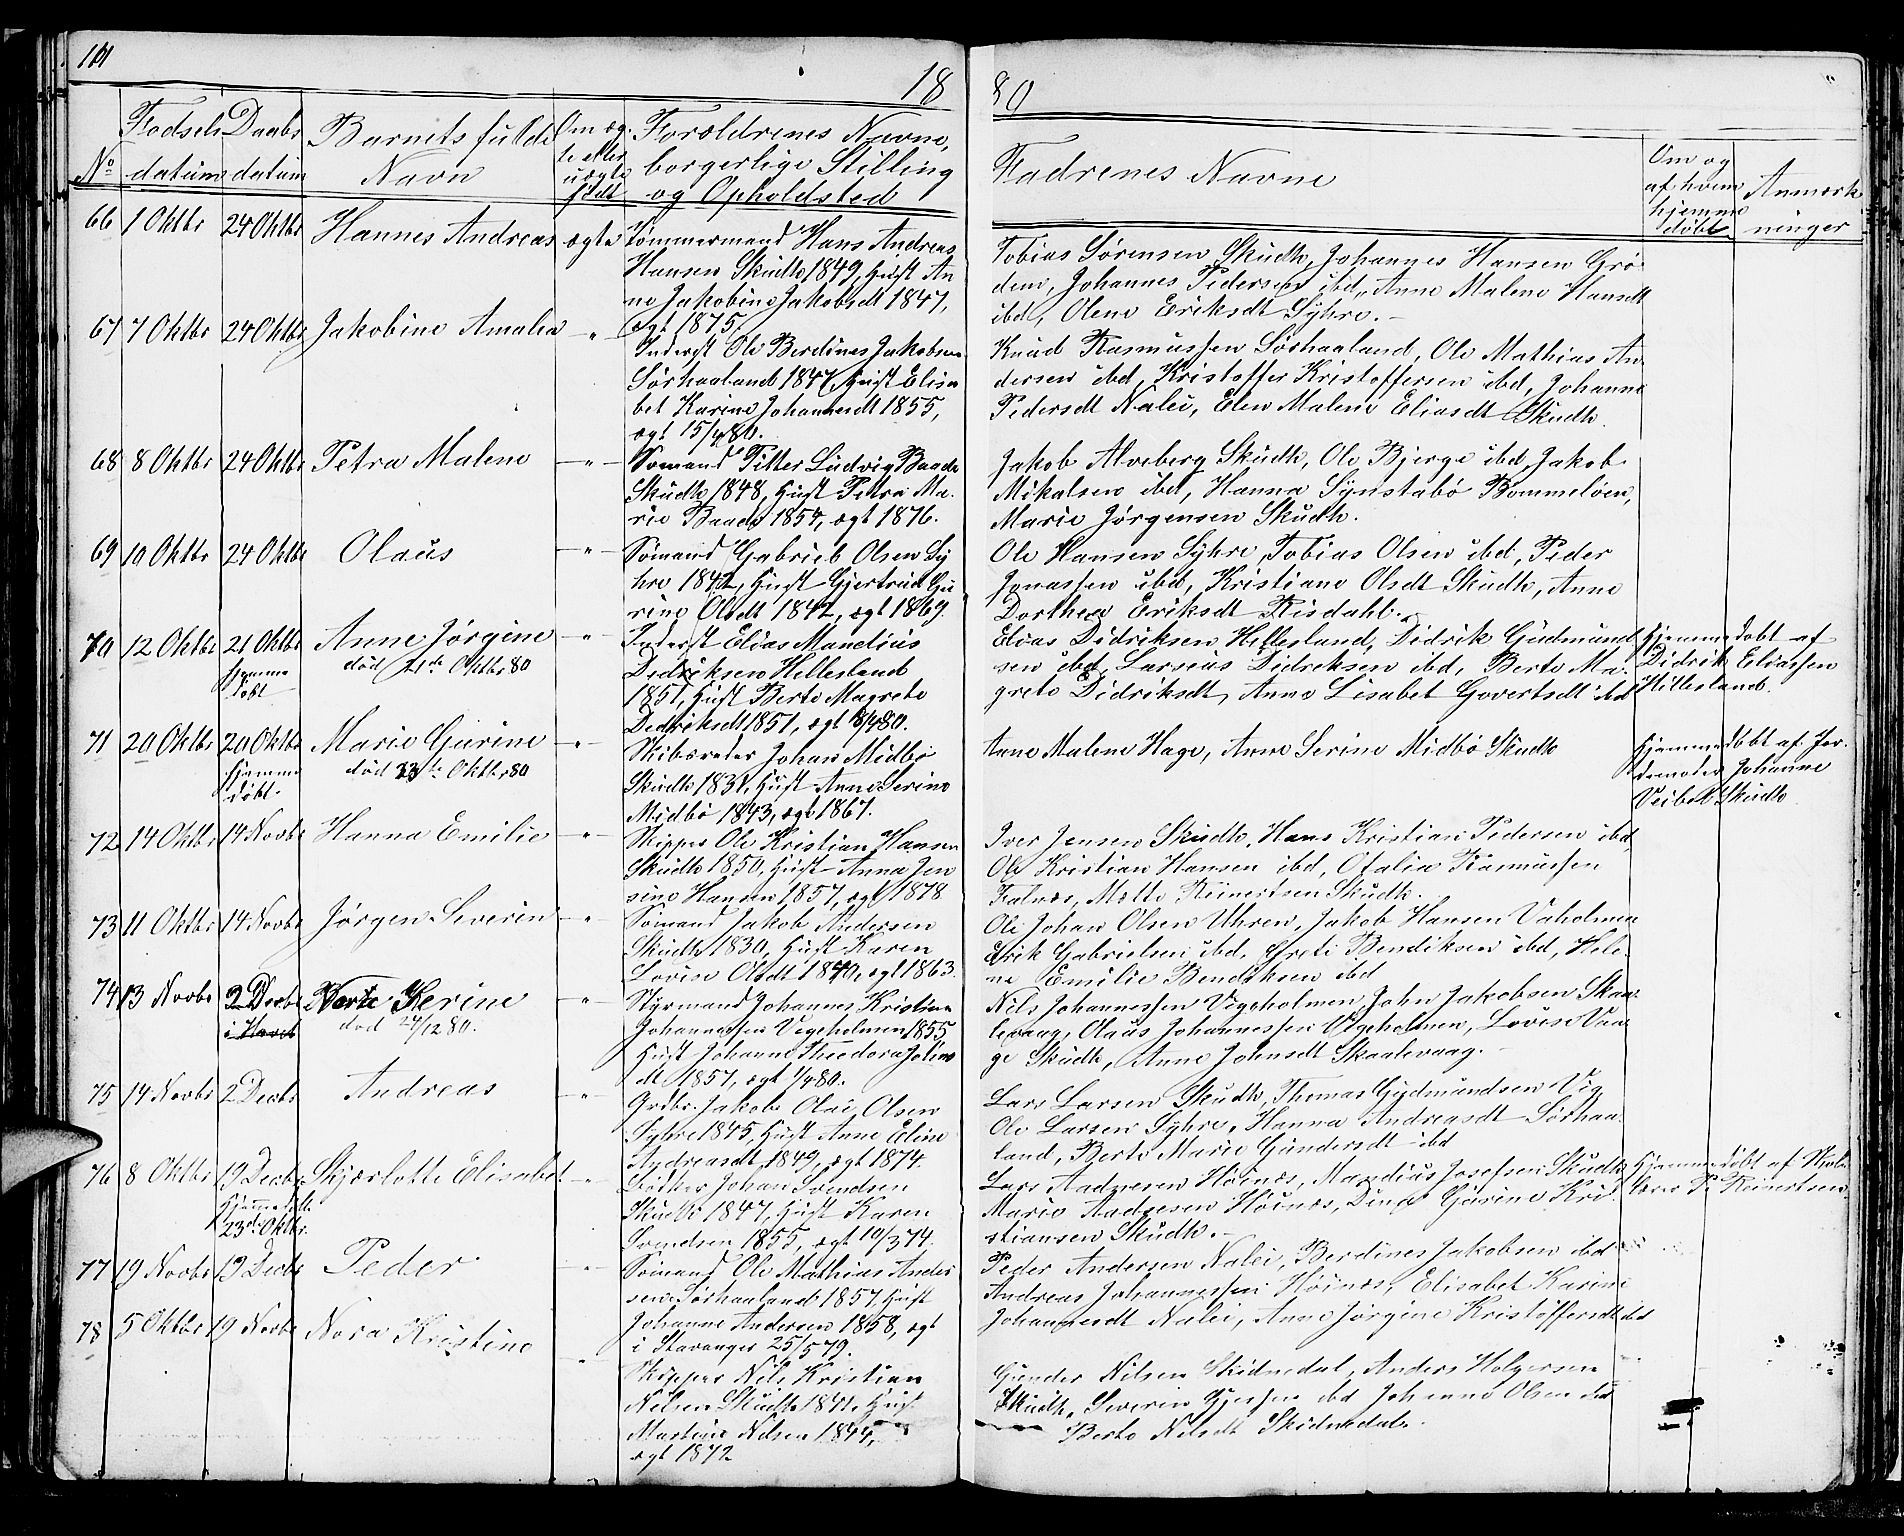 101
18
80
No
Fødsels
datum
Daabs
datum
Barnets fulde
Navn
Om æg-
te eller
uægte
født
Forældrenes Navne,
borgerlige Stilling
og Opholdsted
Fadrenes Navne
Om og
af hvem
hjemme
døbt
Anmærk
ninger
66 1 Oktbr 24 Oktbr Hannes Andreas ægte
Tømmermand Hans Andreas
Hansen Skudh 1849, Hust An
ne Jakobine Jakobsdt 1847,
ægt 1875,
Tobias Sørensen Skudh, Johannes Hansen Grø
dem, Johannes Pedersen ibd, Anne Malene Hansdt
ibd, Olene Eriksdt Syhre.
67 7 Oktbr 24 Oktbr Jakobine Amalia -"-
Inderst Ole Berdines Jakobsen
Sørhaaland 1847, Hust Elisa
bet Karine Johannesdt 1855,
ægt 15/4 80.
Knud Rasmussen Sørhaaland, Ole Mathias An
dersen ibd, Kristoffer Kristoffersen ibd, Johanne
Pedersdt Nalei, Elen Malene Eliasdt Skudh.
68 8 Oktbr 24 Oktbr Petra Malene -"-
Sømand Pitter Ludvig Baade
Skudh 1848, Hust Petra Ma-
rie Baade 1854, ægt 1876.
Jakob Alveberg Skudh, Ole Bjerge ibd, Jakob
Mikalsen ibd, Hanna Synstabø Bommeløen,
Marie Jørgensen Skudh.
69 10 Oktbr 24 Oktbr Olaus -"-
Sømand Gabriel Olsen Sy
hre 1842, Hust Gjertrud Gu
rine Olsdt 1842, ægt 1869.
Ole Hansen Syhre, Tobias Olsen ibd, Peder
Jonassen ibd, Kristiane Olsdt Skudh, Anne
Dorthea Eriksdt Risdahl.
70 12 Oktbr 21 Oktbr Anne Jørgine -"-
hjemme
døbt
død 21de Oktbr 80
Inderst Elias Mandius
Didriksen Hellesland
1851, Hust Berte Magrete
Dedriksdt 1851, ægt 8/4 80.
Elias Didriksen Hellesland, Didrik Gudmund
sen ibd, Larseus Didreksen ibd, Berte Ma-
grete Didriksdt, Anne Lisabet Govertsdt ibd
Hjemmedøbt af
Didrik Eliassen
Hillesland.
71 20 Oktbr 20 Oktbr Marie Gurine -"-
hjemme
døbt
død 23de Oktbr 80
Skibsreder Johan Midbø
Skudh 1831, Hust Anne Serine
Midbø 1843, ægt 1867.
Anne Malene Hage, Anne Serine Midbø Skudh
Hjemmedøbt af Jor-
demoder Johanne
Veibet Skudh
72 14 Oktbr 14 Novbr Hanna Emilie -"-
Skipper Ole Kristian Hansen
Skudh 1850, Hust Anna Jen
sine Hansen 1857, ægt 1878
Iver Jensen Skudh, Hans Kristian Pedersen ibd,
Ole Kristian Hansen ibd, Otalia Rasmussen
Falnes, Mætte Reinertsen Skudh.
73 11 Oktbr 14 Novbr Jørgen Severin -"-
Sømand Jakob Andersen
Skudh 1830, Hust Karen
Lovise Olsdt 1840, ægt 1863.
Ole Johan Olsen Uhren, Jakob Hansen Vaholmen
Erik Gabrielsen ibd, Grete Bendiksen ibd, Hele-
ne Emilie Bendiksen ibd
74 13 Novbr 2 Decbr Serine -"-
død 27/12 80.
Styrmand Johannes Kristian
Johannessen Vigeholmen 1855
Hust Johanne Theodora Johns
dt 1857, ægt 1/4 80.
Nils Johannessen Vigeholmen, John Jakobsen Skaa-
levaag, Olaus Johannessen Vigeholmen, Lovise Vaa-
ge Skudh, Anne Johnsdt Skaalevaag.
75 14 Novbr 2 Decbr Andreas -"-
Grdbr. Jakob Olai Olsen
Syhre 1845, Hust Anne Eline
Andreasdt 1849, ægt 1874.
Lars Larsen Skudh, Thomas Gudmundsen Vig
Ole Larsen Syhre, Hanna Andreasdt Sørhaa-
land, Berte Marie Gundersdt ibd
76 8 Oktbr 19 Decbr Skjærlotte Elisabet -"-
Hjemmedøbt
23de Oktbr.
Bødker Johan Svendsen
Skudh 1847, Hust Karen
Svendsen 1855, ægt 10/3 74.
Lars Aadnesen Høines, Mandius Josefsen Skudh,
Marie Aadnesen Høines, Dina Gurine Kri-
stiansen Skudh.
Hjemmedøbt af Skole
lærer P. Reinertsen
77 19 Novbr 19 Decbr Peder -"-
Sømand Ole Mathias Ander
sen Sørhaaland 1857, Hust
Johanne Andersen 1858, ægt
i Stavanger 25/5 79.
Peder Andersen Nalei, Berdines Jakobsen ibd
Andreas Johannessen Høines, Elisabet Karine
Johannesdt Nalei, Anne Jørgine Kristoffersdt ibd
78 5 Oktbr 19 Novbr Nora Kristine -"-
Skipper Nils Kristian
Nilsen Skudh 1841, Hust
Martine Nilsen 1844,
ægt 1872
Gunder Nilsen Skidnedal, Anders Holgersen
Skudh, Severin Gjessen ibd Johanne Olsen ibd
Berte Nilsdt Skidnedal.